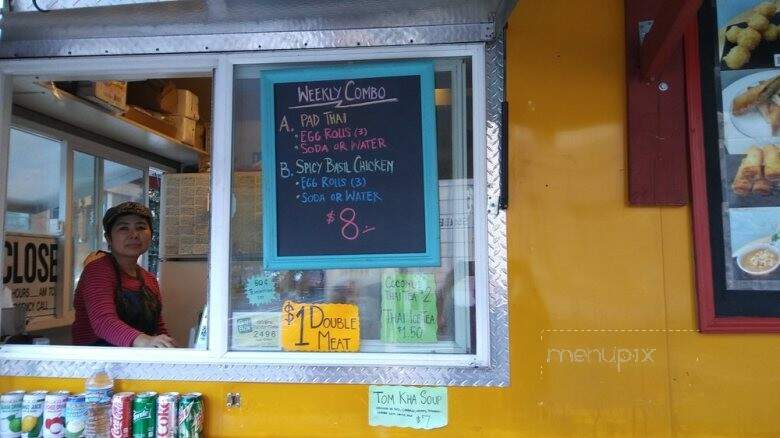 WEEKLY COMBO
A. PAD THAI
• EGG ROLLS (3)
• SODA OR WATER
B. SPICY BASIL CHICKEN
• EGG ROLLS (3)
• SODA OR WATER
$8.-
CLOSE
HOURS
AM TO
CALL
50¢
$1 DOUBLE
MEAT
2496
COCONUT
THAI TEA $2
THAI ICE TEA
$1.50
TOM KHA SOUP
$7
Coke
menupix